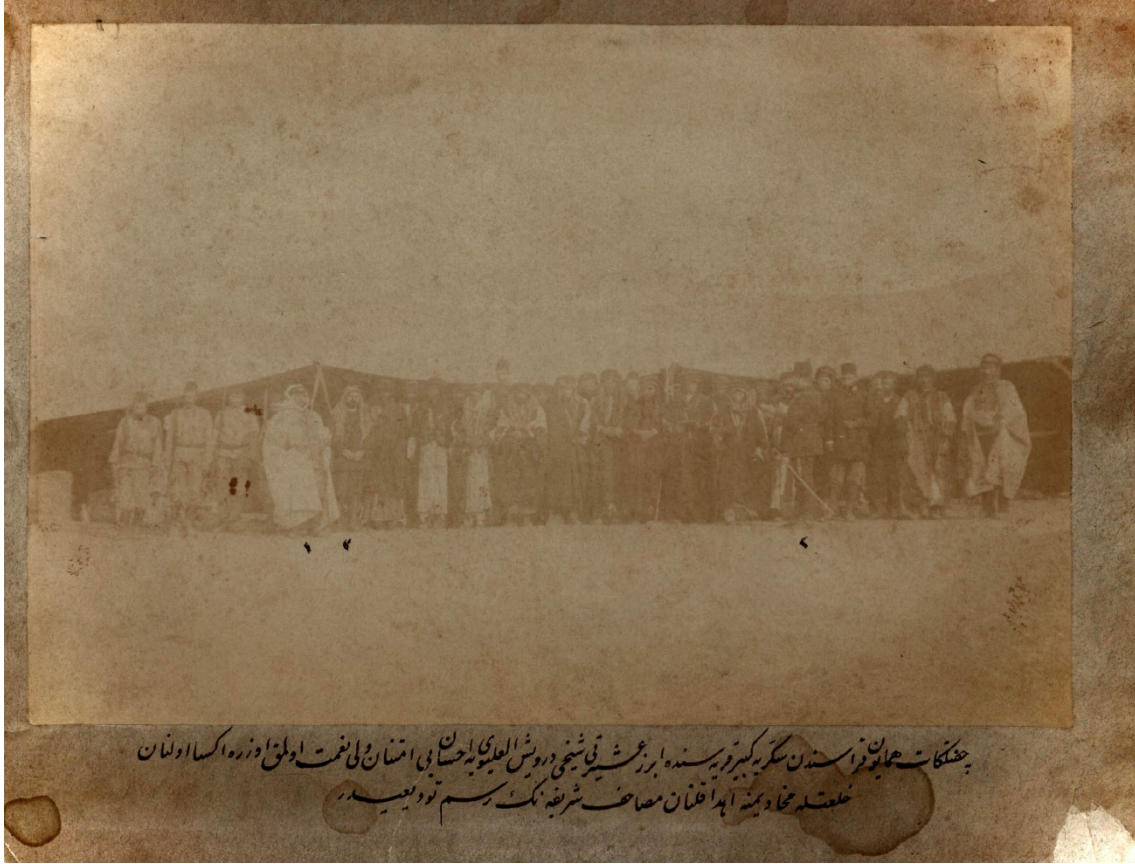 ١ ٣ ٢
چفتلكات همايون قراسندن سكريه كبير قريه سنده ابرز عشيرتى شيخى درويش العليوى يه احسان بى امتنان ولى نعمت اولمق اوزره اكسا اولنان
خلعتله مخاديمنه اهدا قلنان مصاحف شريفه نك رسم توديعيدر